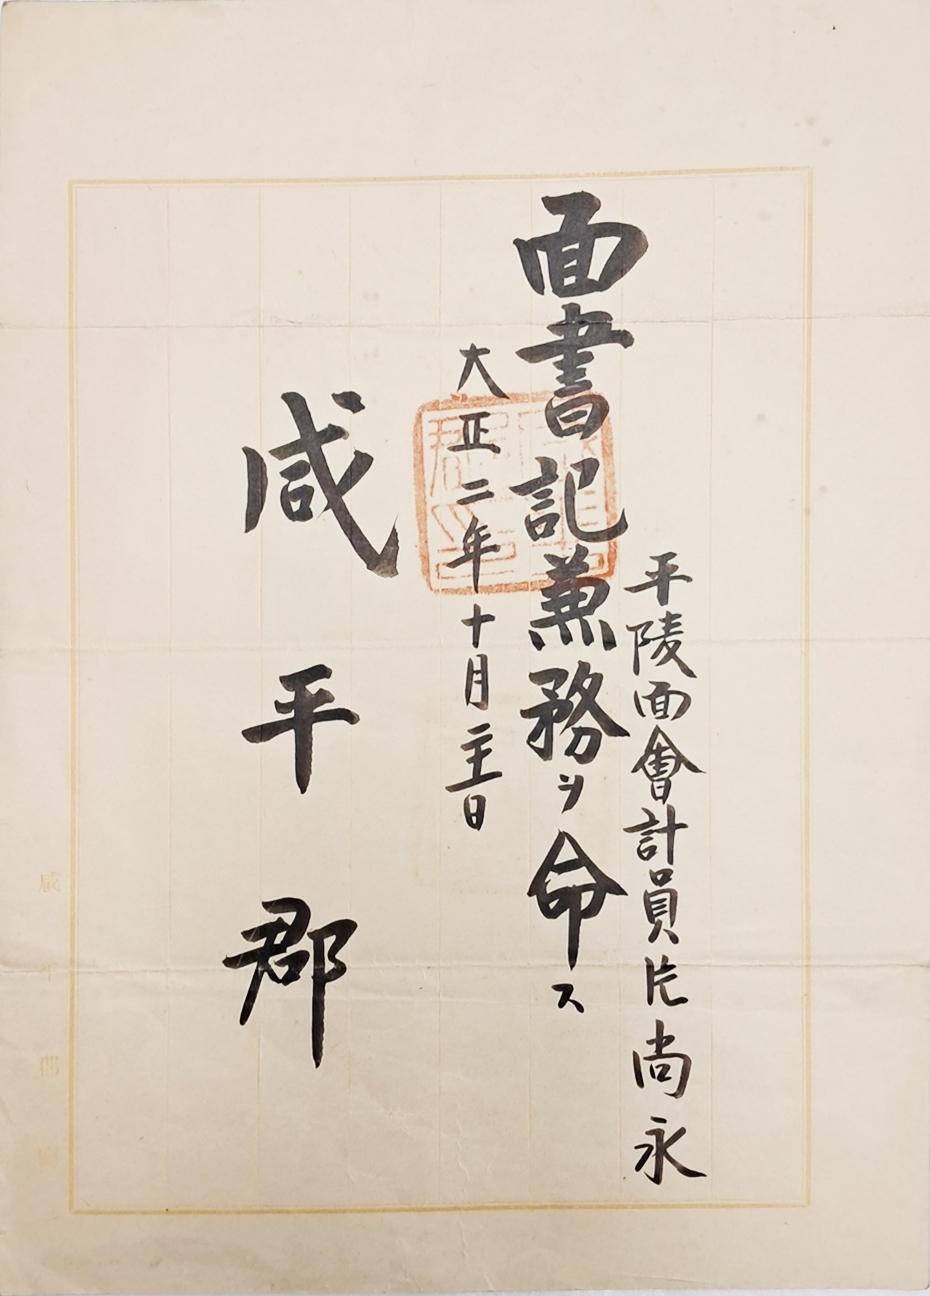 平陵面會計員片尚永
面書記兼務ヲ命ス
大正二年十月 日
咸平郡
咸平郡